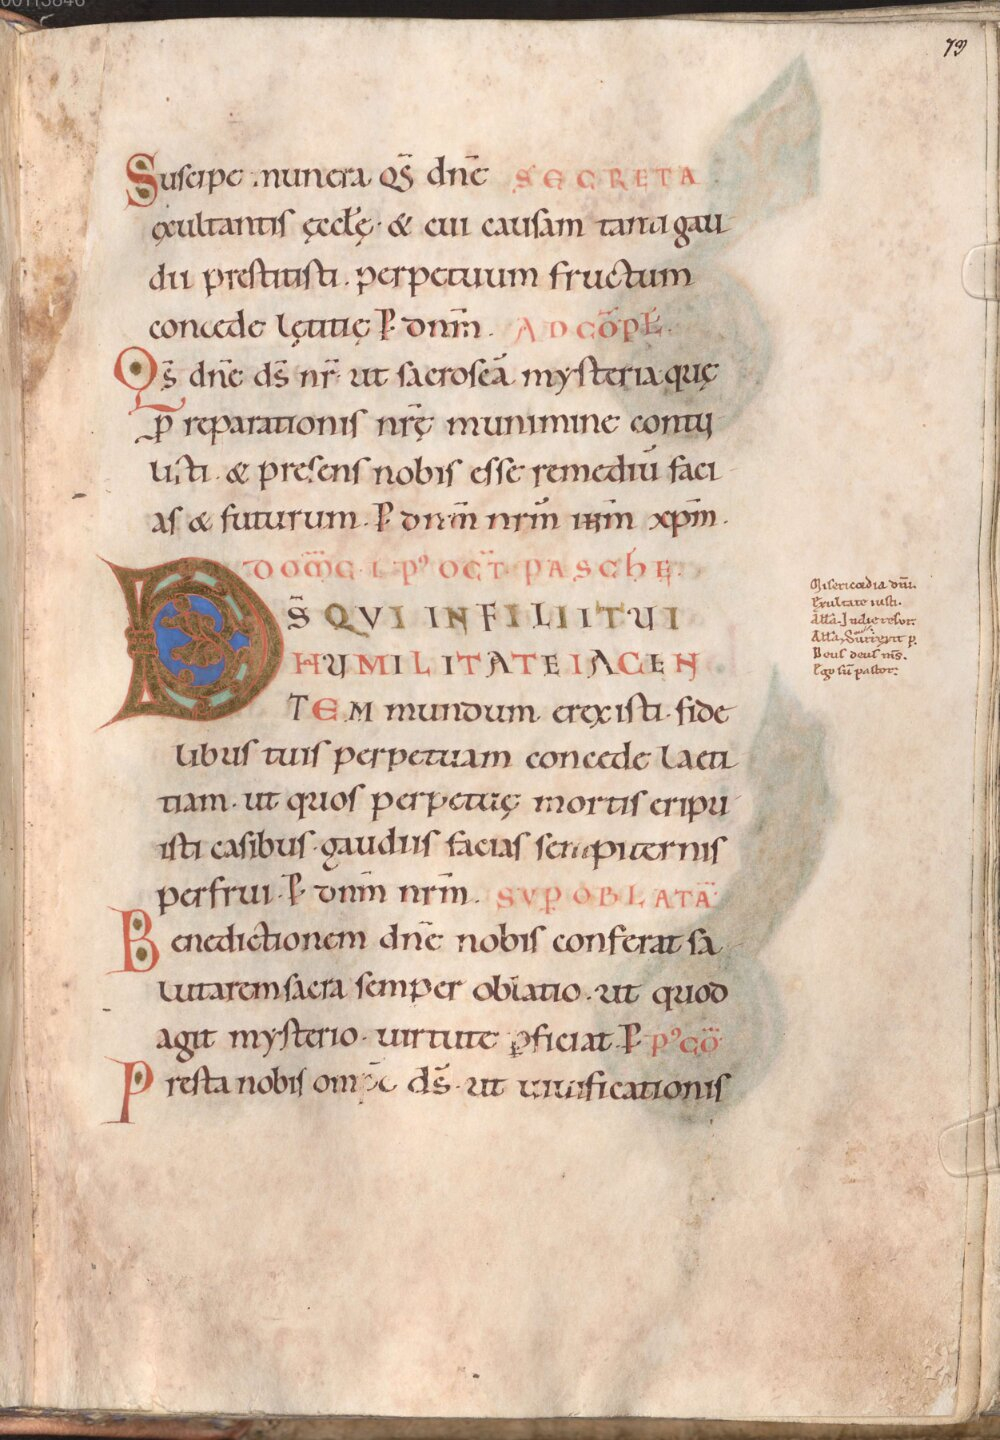 73
Suscipe munera qs̄ dnē SECRETA
exultantis ęcclę · & cui causam tanti gau
dii prestitisti . perpetuum fructum
concede lętitię P̱ dnm̄ . AD CŌPL̄ .
Qs̄ dnē ds̄ nr̄ ut sacroscā mysteria quę
p̱ reparationis nrę̄ munimine contu
listi · & presens nobis esse remediū faci
as & futurum . P̱ dnm̄ nrm̄ ihm̄ xpm̄ .
DOM̄C · I · P⁹ OCT̄ PASCHE .
DS̄ QVI IN FILII TUI
HUMILITATE IACEN
TEM mundum erexisti · fide
libus tuis perpetuam concede laeti
tiam · ut quos perpetuę mortis eripu
isti casibus · gaudiis facias sempiternis
perfrui . P̱ dnm̄ nrm̄ . SVP̱ OBLATĀ
Benedictionem dnē nobis conferat sa
lutarem sacra semper oblatio . ut quod
agit mysterio · uirtute p̱ficiat . P̱ P⁹ CŌ
Presta nobis omp̄c ds̄ · ut uiuificationis
Misericordia dnī .
Exultate iusti .
Allā . In die resur .
Allā . Surrexit p .
Deus deus ms̄ .
Ego sū pastor .